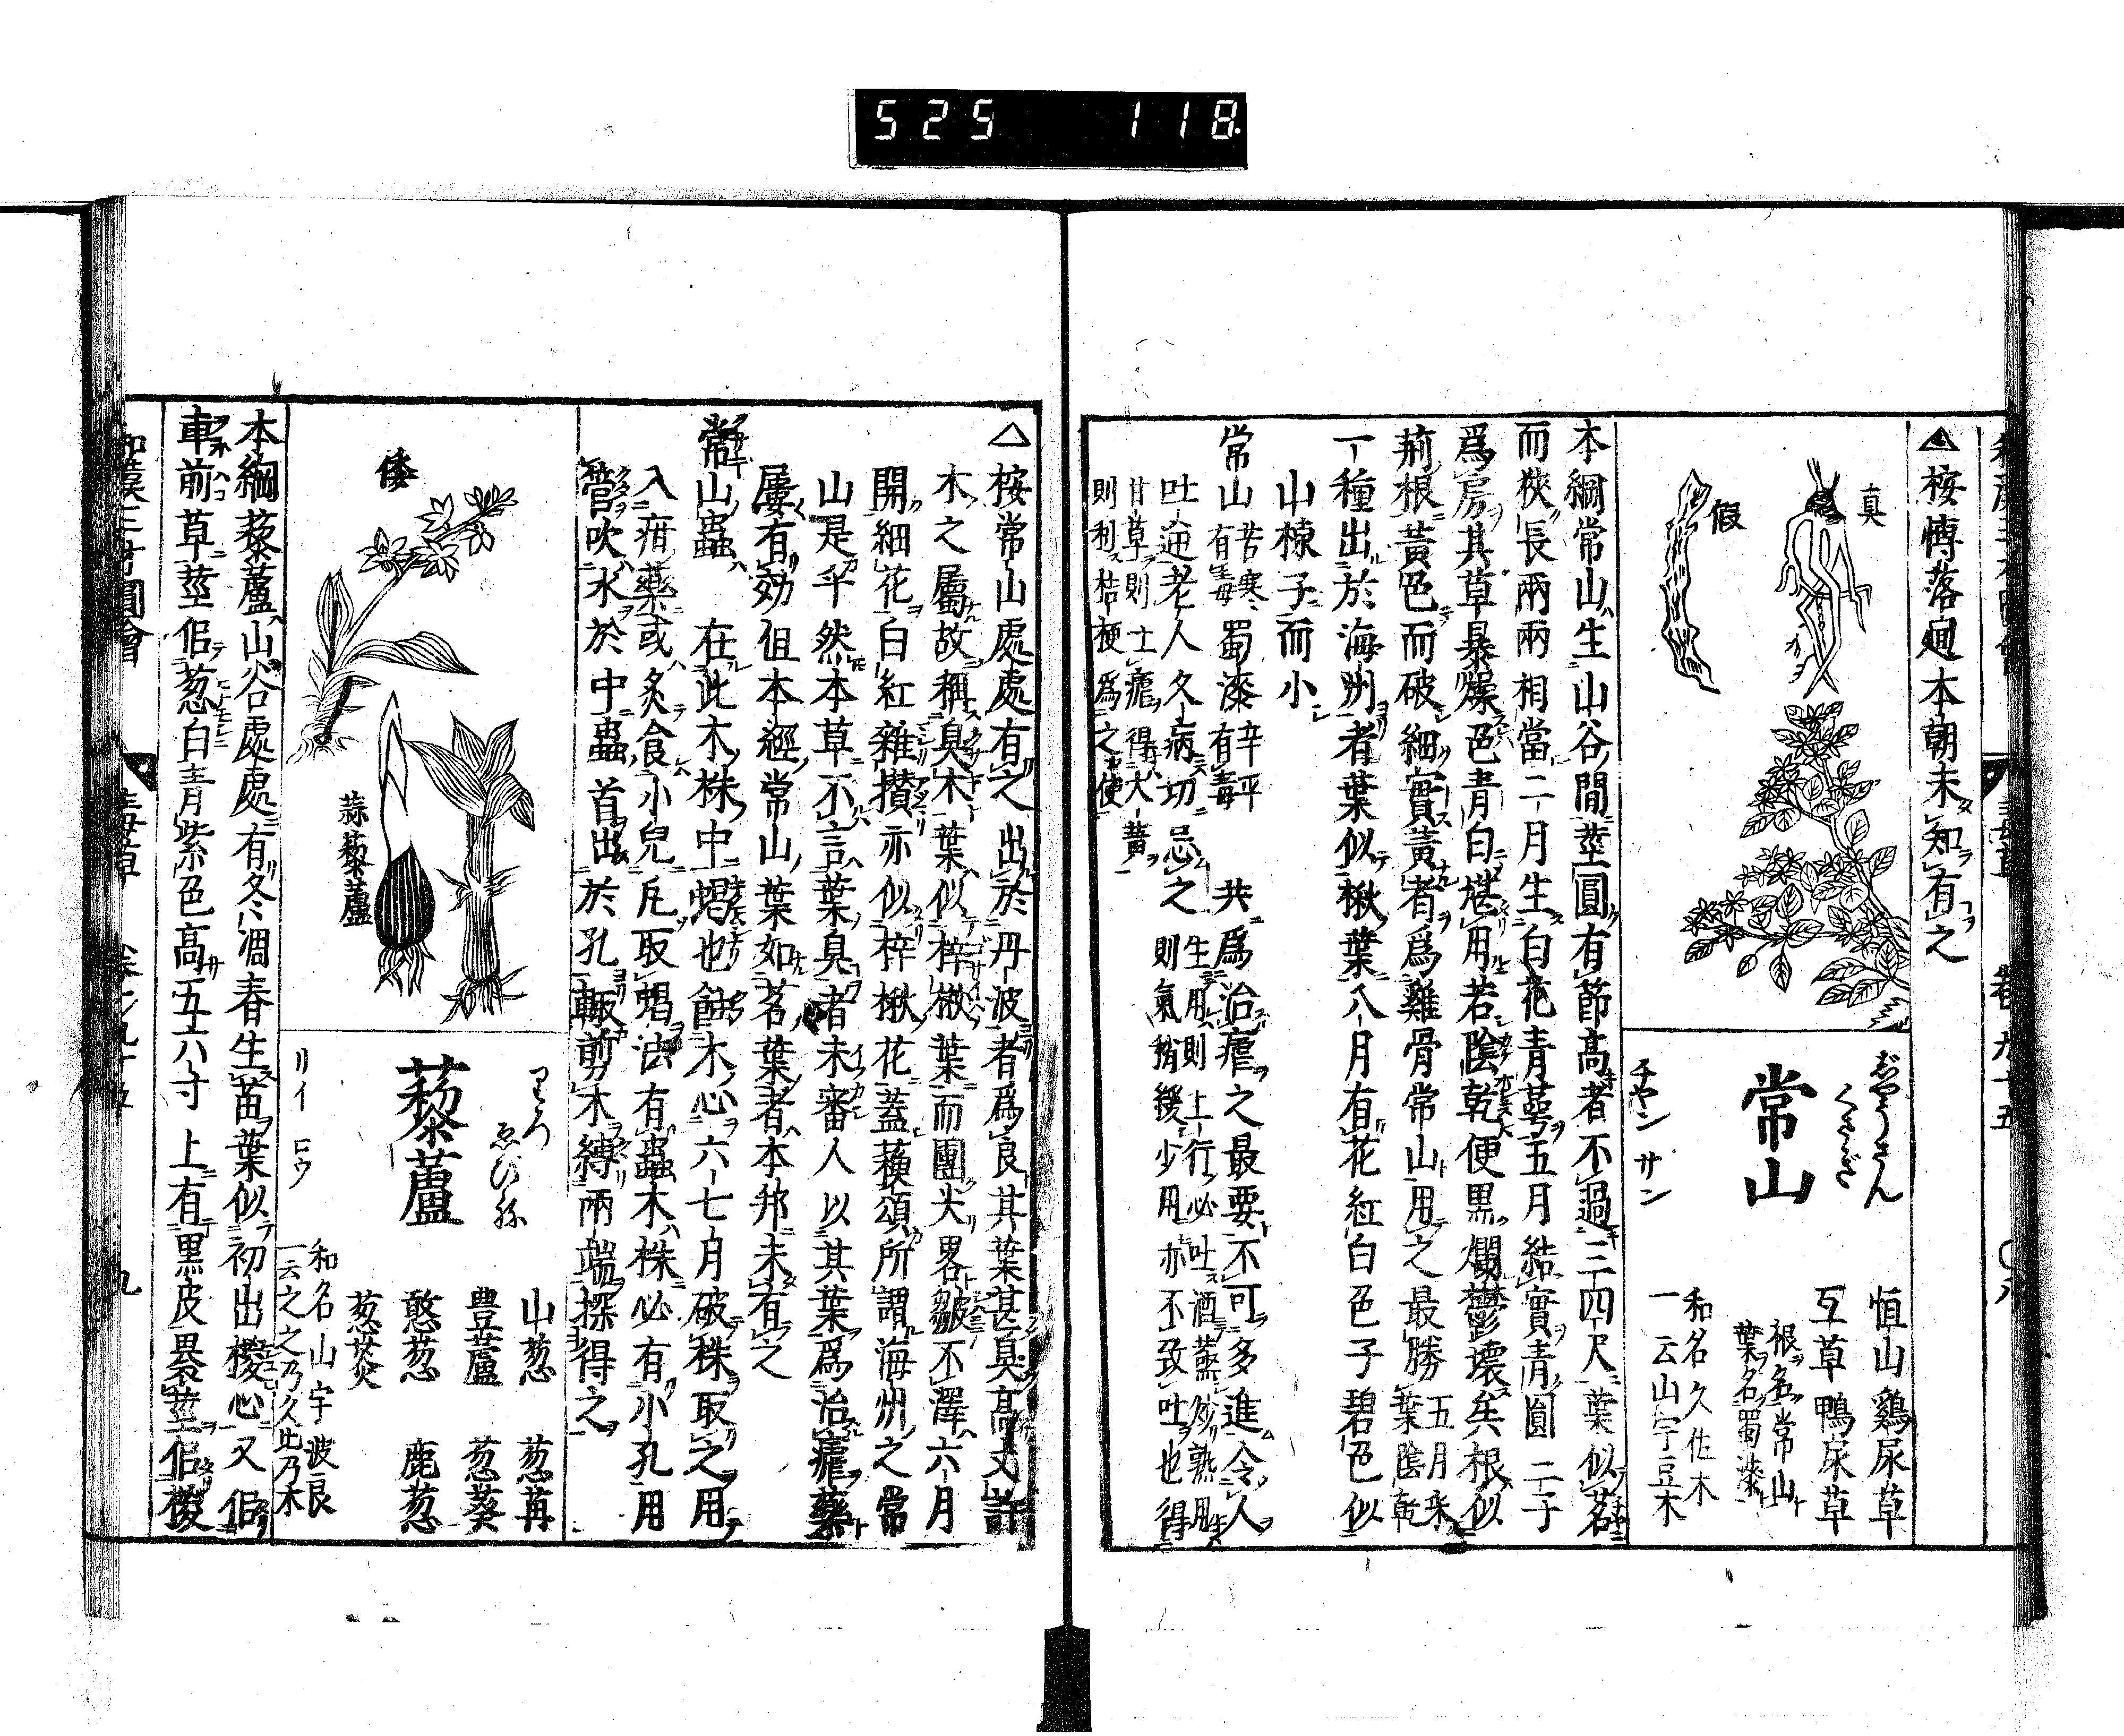 525 118
▲按博落廻本朝未知有之
真
假
常山
ぢやうさん
くさぎ
チヤン サン
恒山 鷄尿草
互草 鴨尿草
根名常山
葉名蜀漆
和名久佐木
一云山宇豆木
本綱常山生山谷間莖圓有節高者不過三四尺葉似茗
而狹長兩兩相當二月生白花青萼五月結實青圓二子
爲房其草暴燥色青白堪用若陰乾便黒爛鬱壞矣根似
荊根黃色而破細實黃者爲雞骨常山用之最勝五月采葉陰乾
一種出於海州者葉似楸葉八月有花紅白色子碧色似
山楝子而小
常山苦寒有毒 蜀漆辛平有毒 共爲治瘧之最要不可多進令人
吐逆老人久病切忌之生用則上行必吐酒蒸炒熟用則氣稍緩少用亦不致吐也得
甘草則土瘧得大黃
則利桔梗爲之使
△按常山處處有之出於丹波者爲良其葉甚臭高丈許
木之屬故稱臭木葉似梓檄葉而團尖畧皺不澤六月
開細花白紅雜攅亦似梓楸花蓋蘓頌所謂海州之常
山是乎然本草不言葉臭者未審人以其葉爲治瘧藥
屢有効但本經常山葉如茗葉者本邦未有之
常山蟲 在此木株中蝎也蝕木心六七月破株取之用
入疳藥或炙食小兒凡取蝎法有蟲木株必有小孔用
管吹水於中蟲首出於孔輙剪木縛兩端採得之
倭
蒜藜蘆
藜蘆
りろ
ゑびね
リイ ロウ
山葱 葱苒
豊蘆 葱葵
憨葱 鹿葱
葱葵
和名山宇波良
一云之之乃久比乃木
本綱藜蘆山谷處處有冬凋春生苗葉似初出椶心又似
車前草莖似葱白青紫色高五六寸上有黒皮褁莖似椶